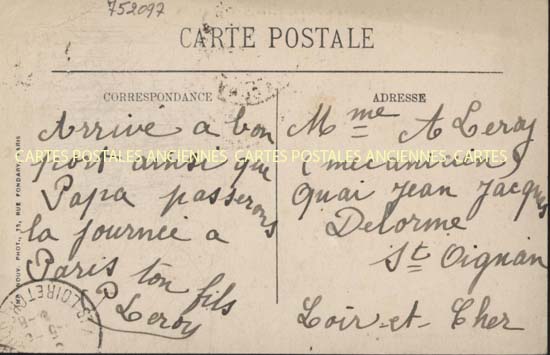 752097
CARTE POSTALE
CORRESPONDANCE
Arrivé a bon
port ainsi que
Papa passerons
la journée a
Paris ton fils
P Leroy
ADRESSE
Mme A Leroy
(mécanicien)
Quai Jean Jacques
Delorme
St Aignan
Loir-et-Cher
CARTES POSTALES ANCIENNES CARTES POSTALES ANCIENNES
PHOT., 77, RUE FONDARY, PARIS
LOIRET